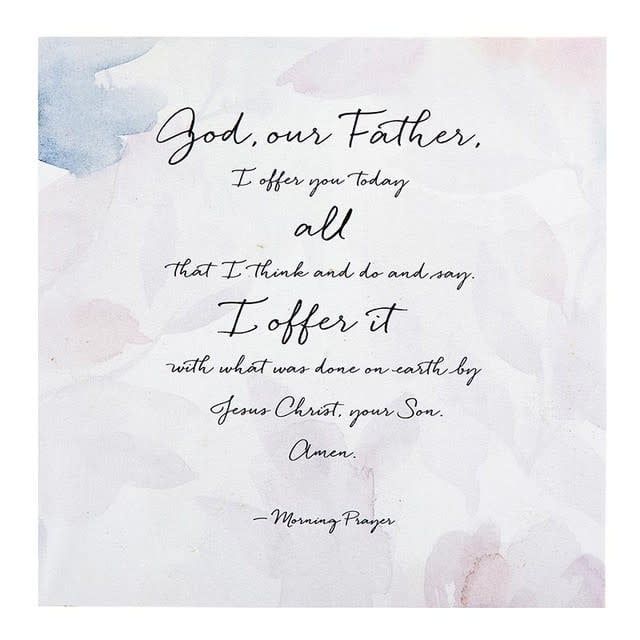 God, our Father,
I offer you today
all
that I think and do and say.
I offer it
with what was done on earth by
Jesus Christ, your Son.
Amen.
— Morning Prayer